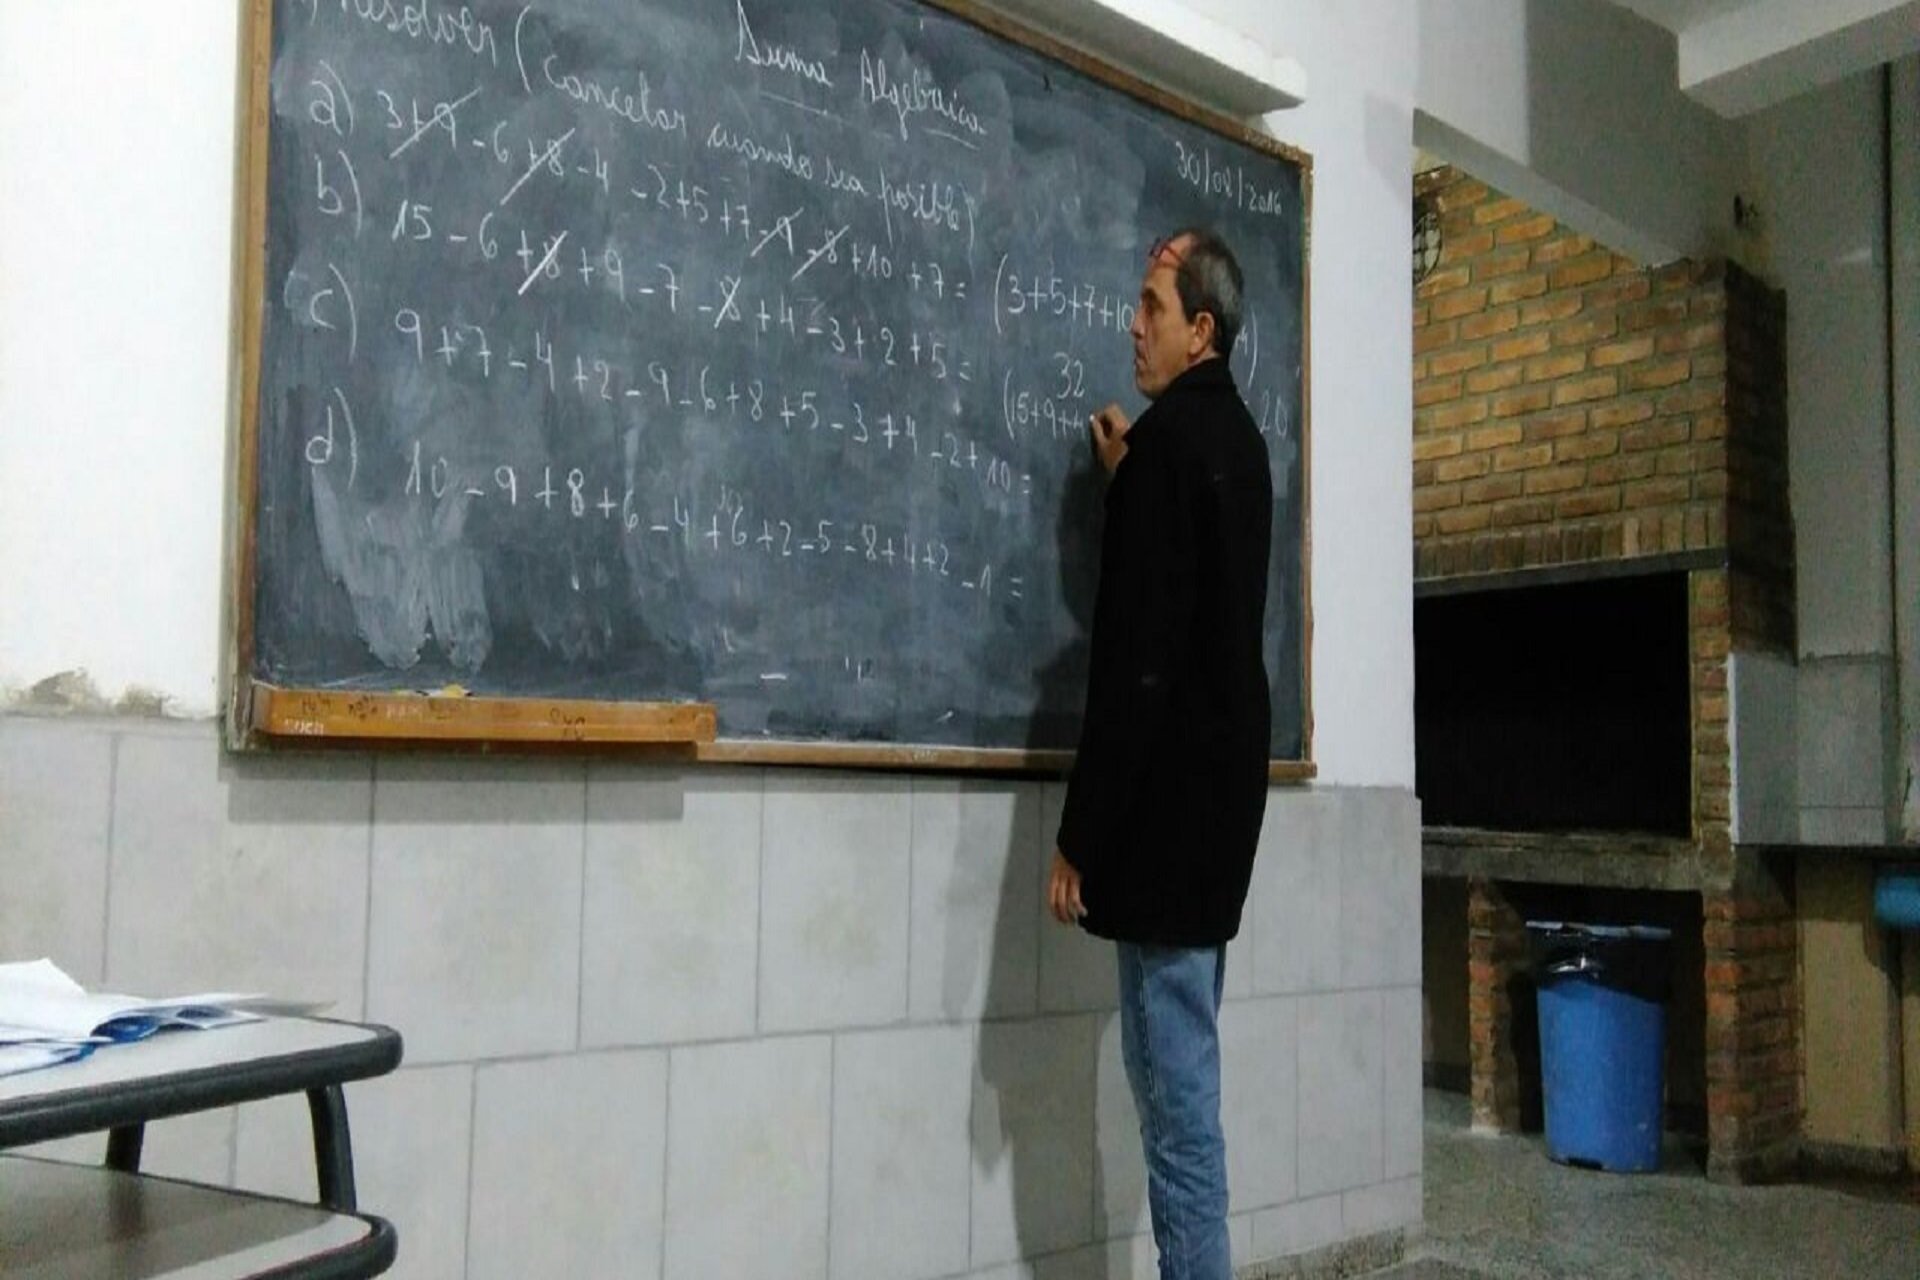 Suma Algebraica
30/08/2016
Resolver (Cancelar cuando sea posible)
a) 3+9-6+8-4-2+5+7-9-8+10+7= (3+5+7+10
32
20
b) 15-6+8+9-7-8+4-3+2+5= (15+9+4
c) 9+7-4+2-9-6+8+5-3+4-2+10=
d) 10-9+8+6-4+6+2-5-8+4+2-1=